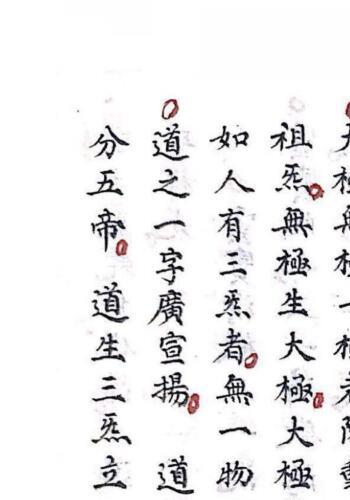 祖炁無極生大極大極
如人有三炁者無一物
道之一字廣宣揚 道
分五帝 道生三炁立